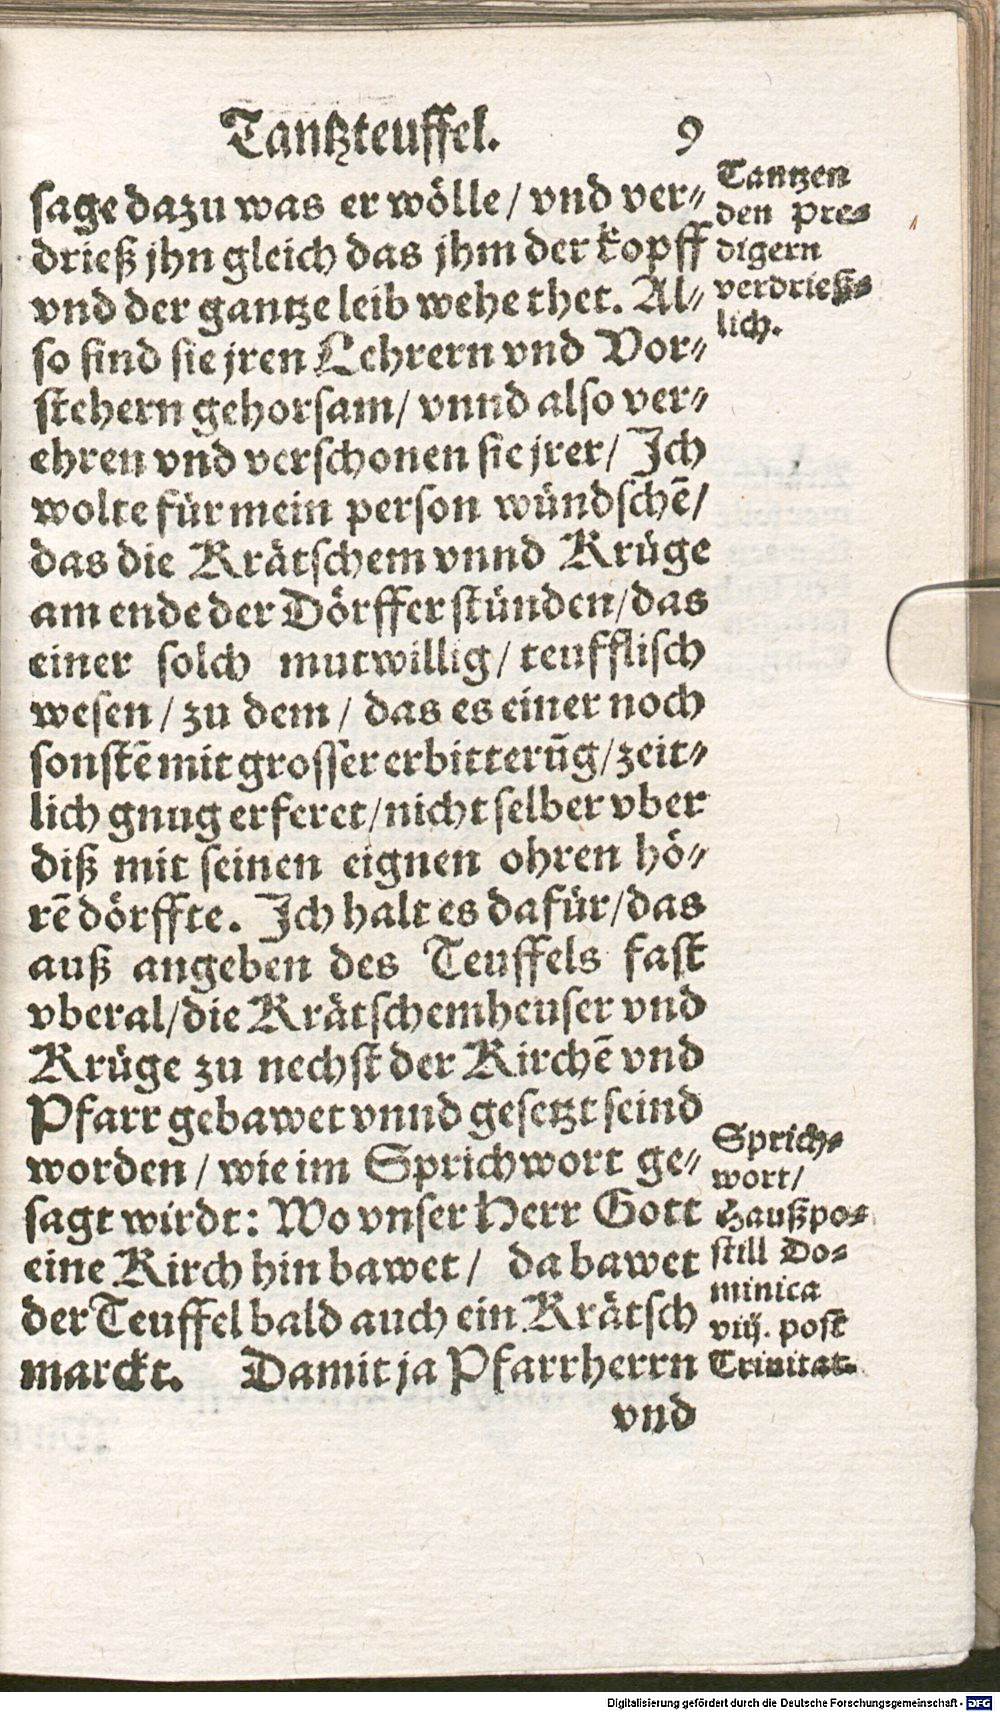 Tantzteuffel. 9
sage dazu was er wölle / vnd ver⸗
drieß jhn gleich das jhm der kopff
vnd der gantze leib wehe thet. Al⸗
so sind sie jren Lehrern vnd Vor⸗
stehern gehorsam / vnnd also ver⸗
ehren vnd verschonen sie jrer / Ich
wolte für mein person wündschē /
das die Krätschem vnnd Krüge
am ende der Dörffer stünden / das
einer solch mutwillig / teufflisch
wesen / zu dem / das es einer noch
sonstē mit grosser erbitterūg / zeit⸗
lich gnug erferet / nicht selber vber
diß mit seinen eignen ohren hö⸗
rē dörffte. Ich halt es dafür / das
auß angeben des Teuffels fast
vberal / die Krätschemheuser vnd
Krüge zu nechst der Kirchē vnd
Pfarr gebawet vnnd gesetzt seind
worden / wie im Sprichwort ge⸗
sagt wirdt: Wo vnser Herr Gott
eine Kirch hin bawet / da bawet
der Teuffel bald auch ein Krätsch
marckt. Damit ja Pfarrherrn
vnd
Tantzen
den Pre⸗
digern
verdrieß⸗
lich.
Sprich⸗
wort /
Haußpo⸗
still Do⸗
minica
viij. post
Trinitat.
Digitalisierung gefördert durch die Deutsche Forschungsgemeinschaft - DFG